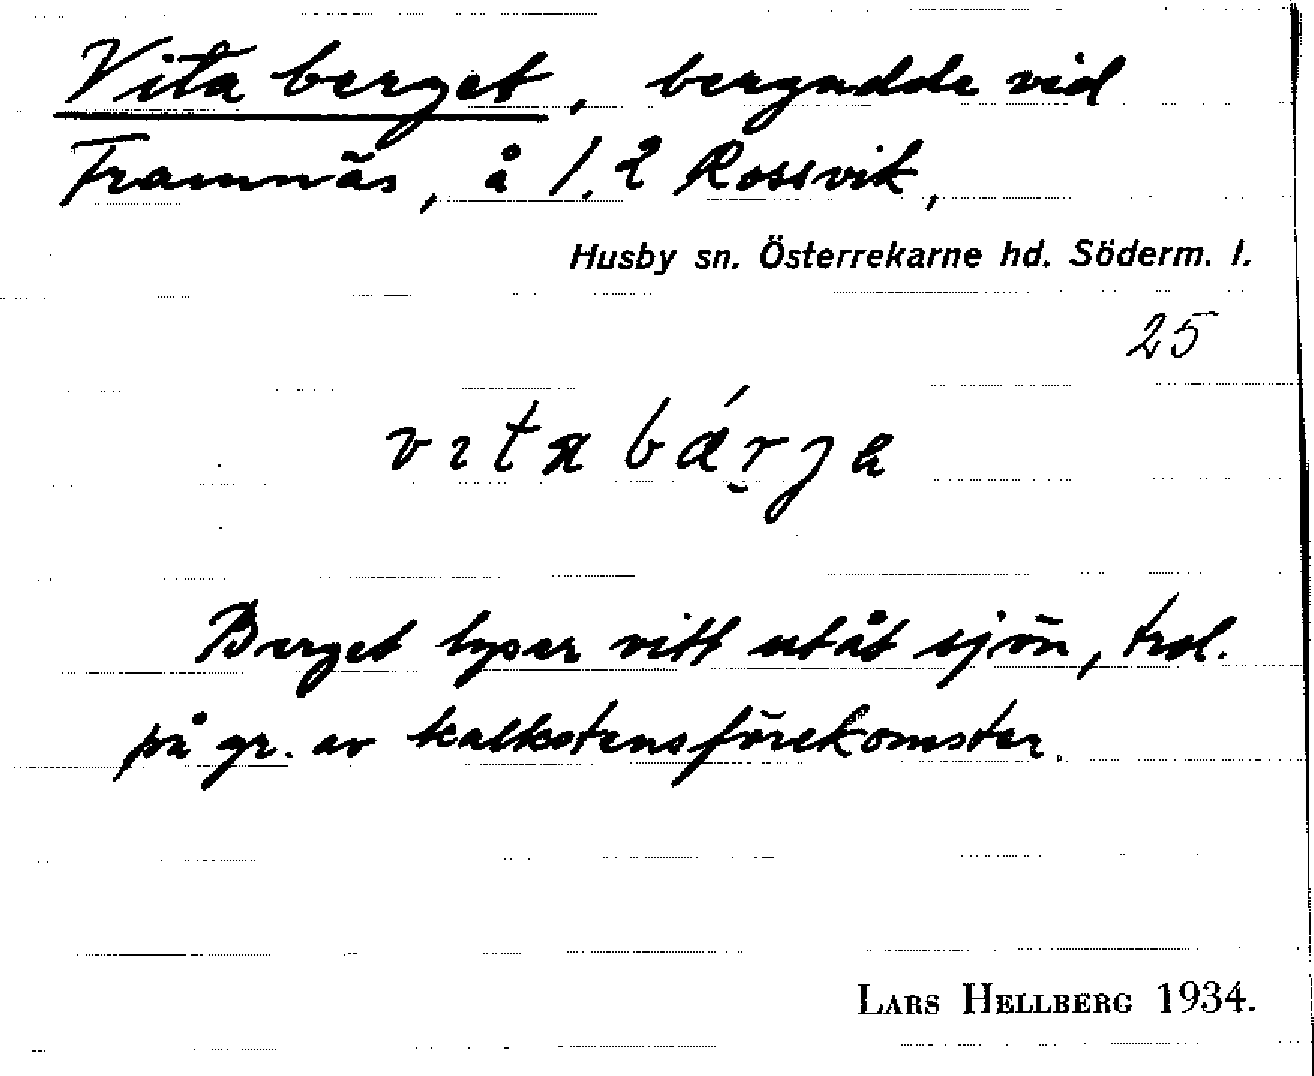 Vita berget, bergudde vid
Framnäs, å 1.2 Rossvik,
Husby sn. Österrekarne hd. Söderm. l.
25
vıta bárja
Berget lyser vitt utåt sjön, trol.
på gr. av kalkstensförekomster.
LARS HELLBERG 1934.